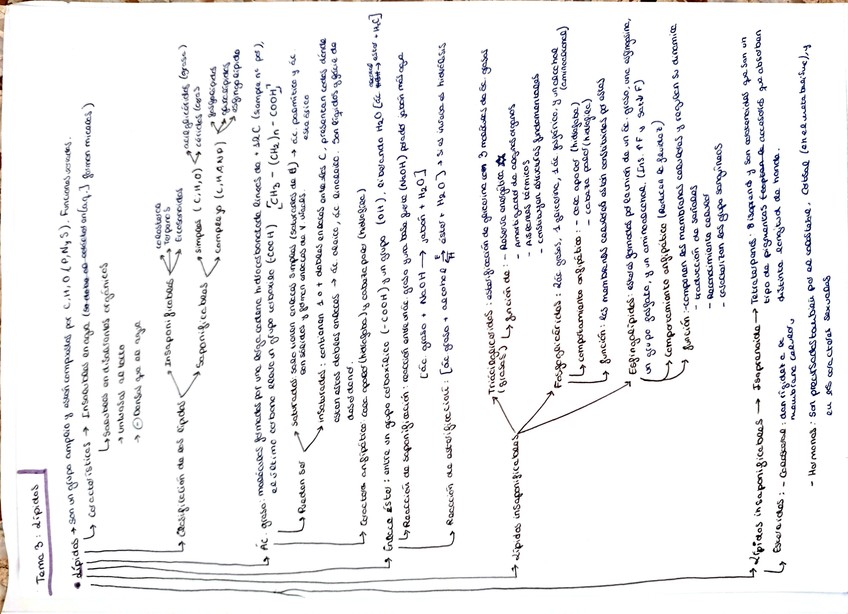 Tema 3: Lípidos
• Lípidos → son un grupo amplio y están compuestos por C, H, O (P, N y S). Funciones variadas.
↳ Características → Insolubles en agua
↳ Solubles en disolventes orgánicos
→ Untuosos al tacto
→ ⊖ densos que el agua
→ Clasificación de los lípidos
Insaponificables
colesterina
Terpenos
Eicosanoides
Saponificables
simples (C, H, O)
acilglicéridos (grasa)
céridos (ceras)
complejos (C, H, O, N, P)
fosfolípidos
glucolípidos
esfingolípido
→ Ác. graso: moléculas formadas por una larga cadena hidrocarbonada lineal de + 12C (siempre nº par),
el último carbono es un grupo carboxilo (COOH) [CH3 – (CH2)n – COOH]
↳ Pueden ser
saturados: solo tienen enlaces simples → ác. palmítico y ác. esteárico
son sólidos y forman enlaces de V. Waals
insaturados: contienen 1 o + dobles enlaces entre los C, presentan codos donde
están estos dobles enlaces → ác. oleico, ác. linoleico: son líquidos y fácil de
→ Carácter anfipático: cola apolar (hidrófoba) y cabeza polar (hidrófila)
→ Enlace éster: entre un grupo carboxílico (-COOH) y un grupo (OH), liberando H2O
↳ Reacción de saponificación: reacción entre un ác. graso y una base fuerte (NaOH) para dar jabón más agua
[ác. graso + NaOH → jabón + H2O]
→ Reacción de esterificación: [ác. graso + alcohol ⇌ éster + H2O] → si es inversa es hidrólisis
→ Lípidos insaponificables
Triacilglicéridos: esterificación de glicerina con 3 moléculas de ác. grasos
(grasas) ↳ función de: - Reserva energética
- Amortiguador de algunos órganos
- Aislantes térmicos
Fosfoglicéridos: 2 ác. grasos, 1 glicerina, 1 ác. fosfórico, y un alcohol (aminoalcohol)
↳ comportamiento anfipático: - cola apolar (hidrófoba)
- cabeza polar (hidrófila)
↳ función: las membranas celulares están constituidas por ellos
Esfingolípidos: están formados por la unión de un ác. graso, una esfingosina,
un grupo fosfato, y un aminoalcohol
↳ Comportamiento anfipático
↳ función: componen las membranas celulares y regulan su dinámica
- traducción de señales
- Reconocimiento celular
- caracterizan los grupos sanguíneos
→ Lípidos insaponificables → Isoprenoides → Tetraterpenos: 8 isoprenos y son carotenoides que son un
tipo de pigmentos accesorios que absorben
distinta longitud de onda.
↳ Esteroides: - Colesterol: dan rigidez a la
membrana celular,
- Hormonas: son precursadas también por el colesterol. Cortisol
en los caracteres sexuales